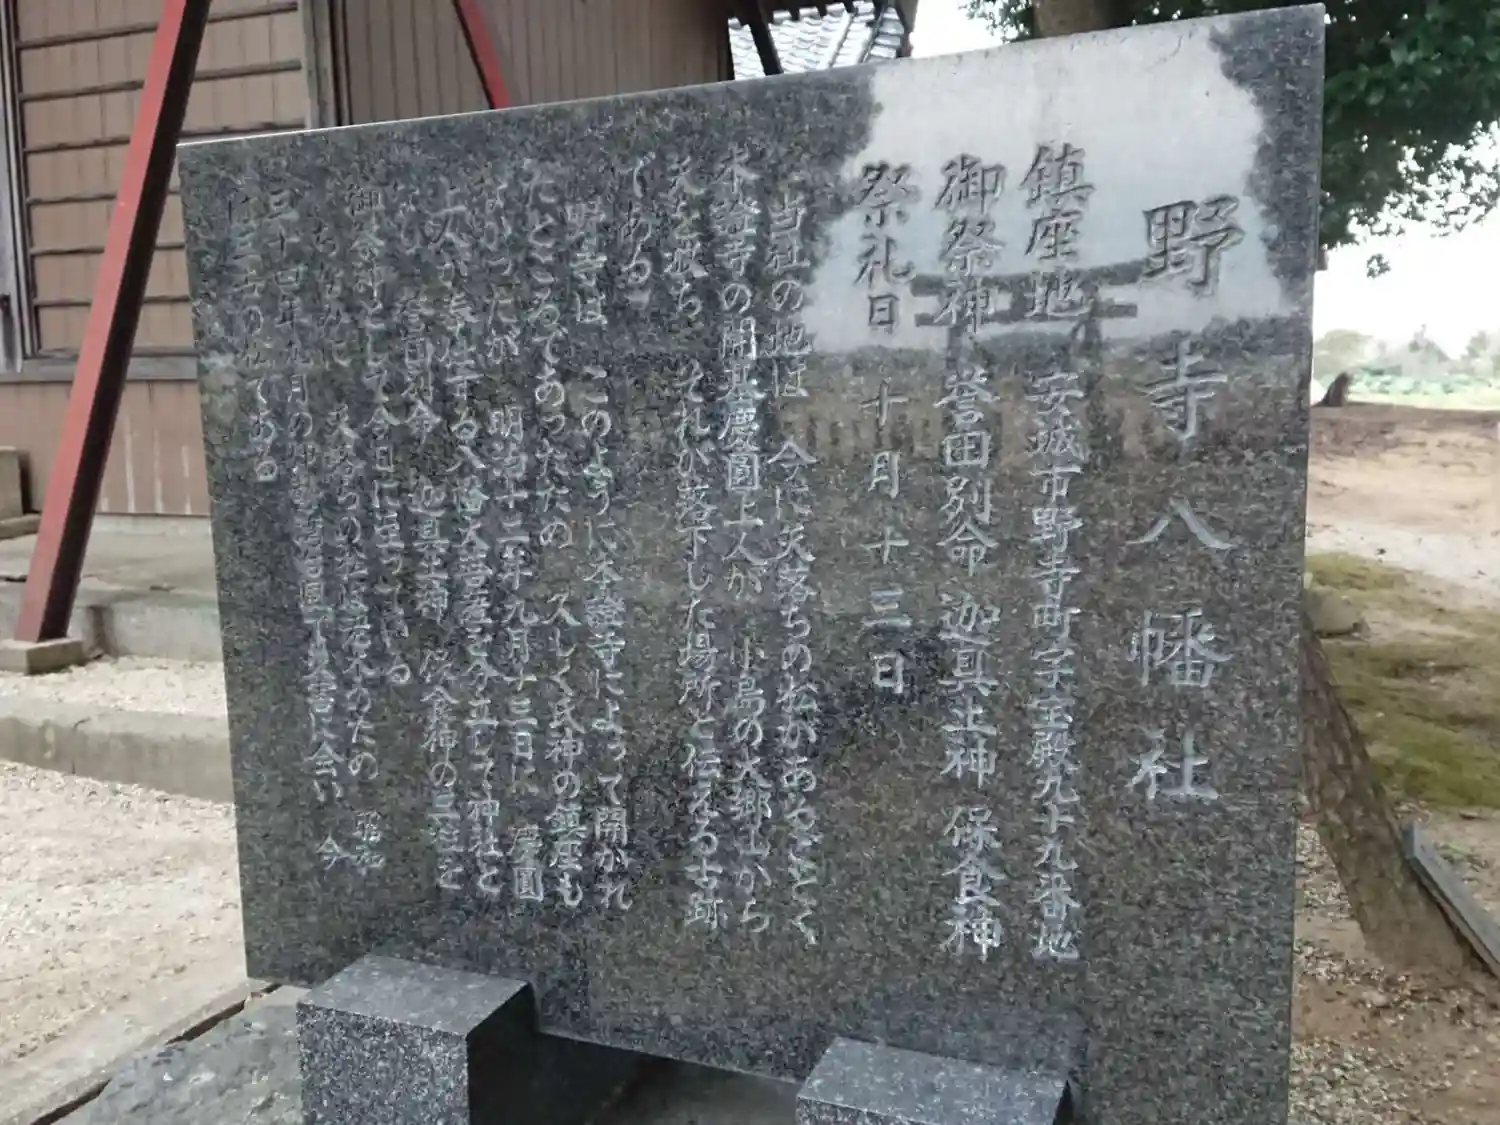 野寺八幡社
鎮座地 安城市野寺町字宝殿九十九番地
御祭神 誉田別命 迦具土神 保食神
祭礼日 十月十三日
当社の地は 今に矢落ちの松があるごとく
本證寺の開基慶圓上人が 小島の大郷山から
矢を放ち それが落下した場所と伝える古跡
である。
野寺は このように本證寺によって開かれ
たところであったため 久しく氏神の鎮座も
なかったが 明治十二年九月十三日に 慶圓
上人が奉仕する八幡大菩薩を分立して神社と
誉田別命 迦具土神 保食神の三柱を
御祭神として今日に至っている
ちなみに 矢落ちの松は老木のため 昭和
三十四年九月の伊勢湾台風で災害に会い 今
は三古の松である